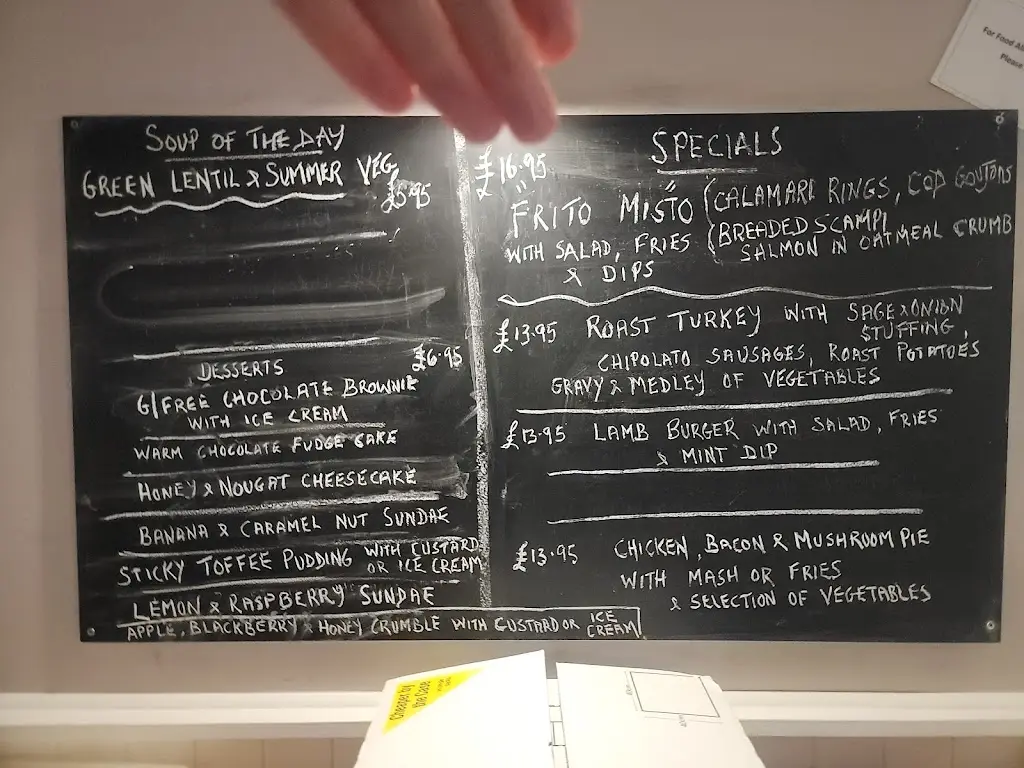 SOUP OF THE DAY
GREEN LENTIL & SUMMER VEG
£5.95
DESSERTS £6.95
G/FREE CHOCOLATE BROWNIE
WITH ICE CREAM
WARM CHOCOLATE FUDGE CAKE
HONEY & NOUGAT CHEESECAKE
BANANA & CARAMEL NUT SUNDAE
STICKY TOFFEE PUDDING WITH CUSTARD
OR ICE CREAM
LEMON & RASPBERRY SUNDAE
APPLE, BLACKBERRY & HONEY CRUMBLE WITH CUSTARD OR ICE
CREAM
SPECIALS
£16.95
"FRITO MISTO" (CALAMARI RINGS, COD GOUJONS
WITH SALAD, FRIES (BREADED SCAMPI
& DIPS SALMON IN OATMEAL CRUMB
£13.95 ROAST TURKEY WITH SAGE & ONION
STUFFING,
CHIPOLATO SAUSAGES, ROAST POTATOES
GRAVY & MEDLEY OF VEGETABLES
£13.95 LAMB BURGER WITH SALAD, FRIES
& MINT DIP
£13.95 CHICKEN, BACON & MUSHROOM PIE
WITH MASH OR FRIES
& SELECTION OF VEGETABLES
For Food
Please
Cheaper by
the Case